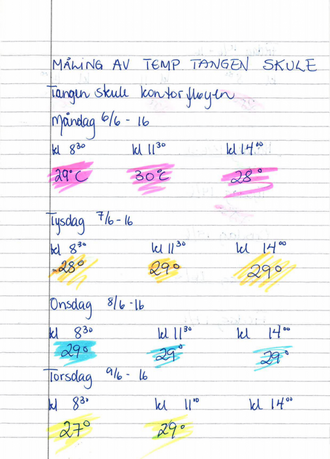 MÅLING AV TEMP TANGEN SKULE
Tangen skule kontorfløyen
Måndag 6/6-16
kl 8³⁰ kl 11³⁰ kl 14⁰⁰
29°C 30°C 28°
Tysdag 7/6-16
kl 8³⁰ kl 11³⁰ kl 14⁰⁰
28° 29° 29°
Onsdag 8/6-16
kl 8³⁰ kl 11³⁰ kl 14⁰⁰
29° 29° 29°
Torsdag 9/6-16
kl 8³⁰ kl 11¹⁰ kl 14⁰⁰
27° 29°